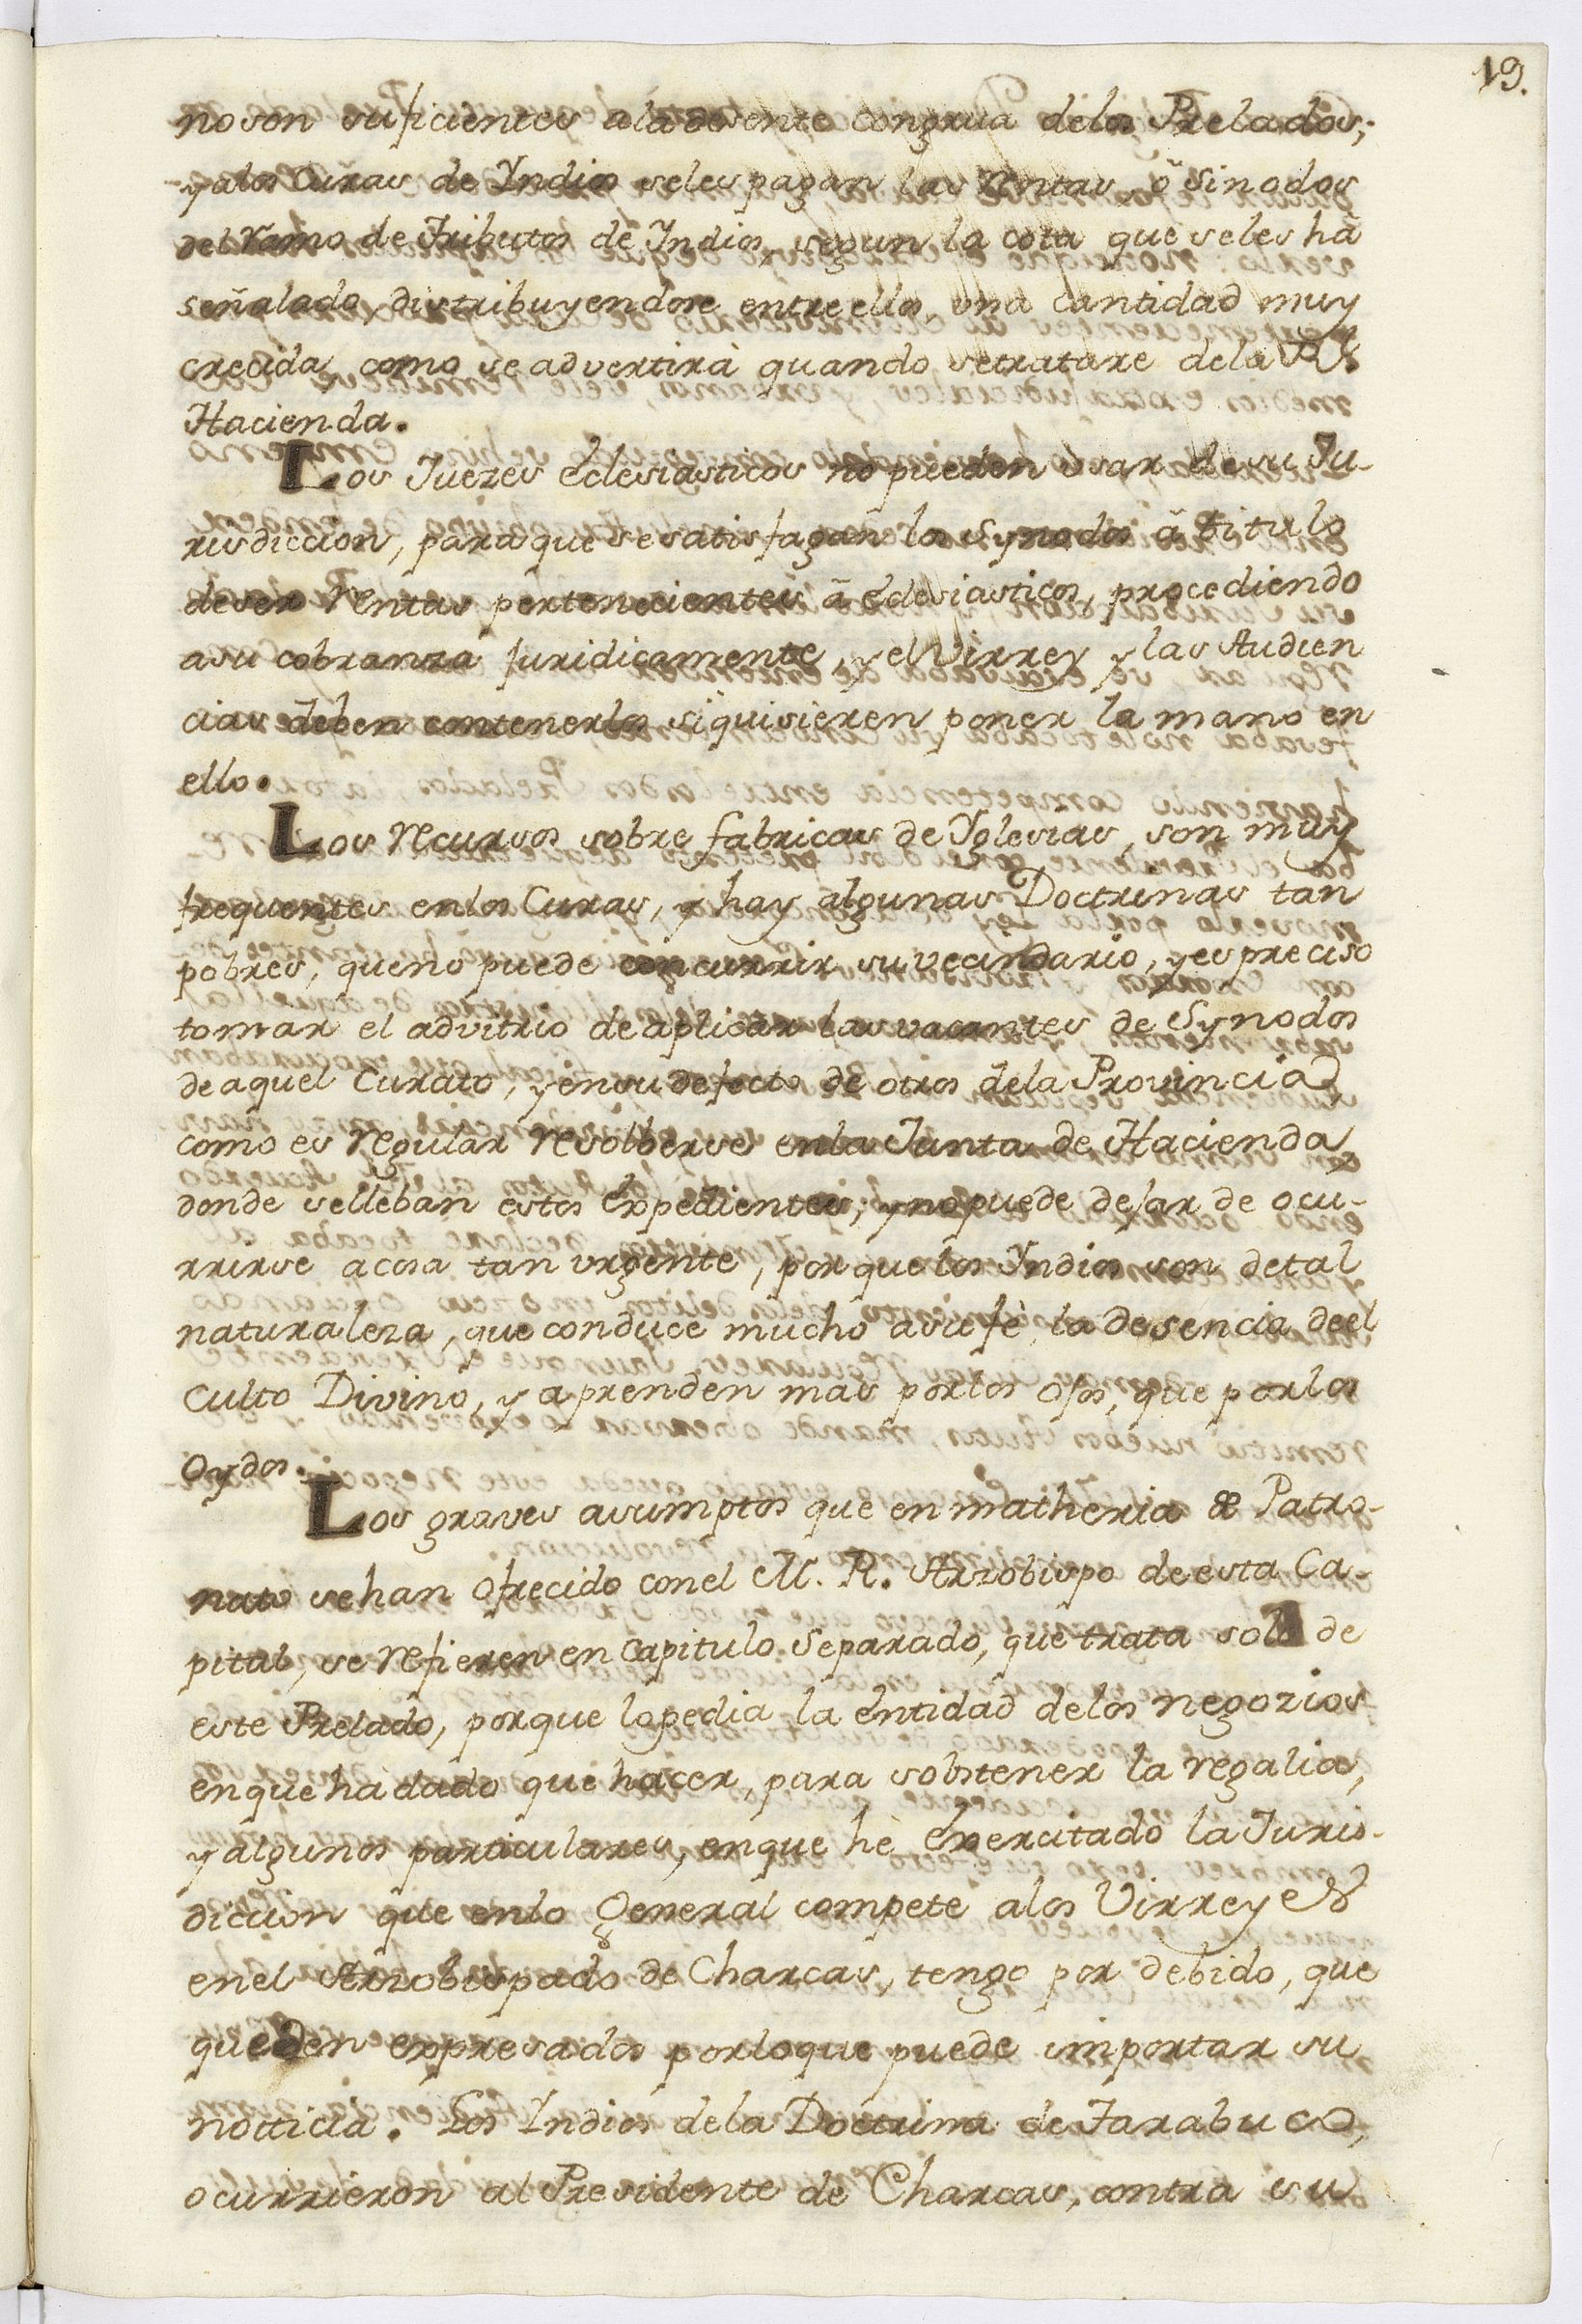 19.
no son suficientes ala desente congrua delos Prelados;
y alos Curas de Yndios seles pagan las rentas, ô Sinodos
del ramo de Tributos de Indios, segun la cota que seles hâ
señalado, distribuyendose entre ellos, una cantidad muy
crecida, como se advertirà quando setratare dela Rl.
Hacienda.
Los Juezes Eclesiasticos no pueden usar desu Ju-
risdiccion, paraque se satisfagan los Synodos â titulo
deser rentas pertenecientes â Eclesiasticos, procediendo
asu cobranza juridicamente, y el Virrey y las Audien
cias deben contenerlos si quisieren poner la mano en
ello.
Los recursos sobre fabricas de Yglesias, son muy
frequentes enlos Curas, y hay algunas Doctrinas tan
pobres, queno puede concurrir su vecindario, y es preciso
tomar el advitrio de aplicar las vacantes de Synodos
de aquel Curato, y ensu defecto de otros dela Provincia
como es regular resolberse enla Junta de Hacienda
donde selleban estos Expedientes; y no puede dejar de ocu-
rrirse a cosa tan urgente, por que los Yndios son detal
naturaleza, que conduce mucho asu fè, la desencia deel
Culto Divino, y aprenden mas porlos ojos, que porlos
Oydos.
Los graves asumptos que en matheria de Patro-
nato sehan Ofrecido conel M. R. Arzobispo de esta Ca-
pital, se refieren en Capitulo Separado, que trata solo de
este Prelado, porque lopedia la entidad delos negozios
enque ha dado que hacer, para sobstener la regalia,
y algunos particulares, enque hè Exercitado la Juris-
diccion que enlo General compete alos Virreyes
enel Arzobispado de Charcas, tengo por debido, que
queden expresados porloque puede importar su
notticia. Los Indios dela Doctrina de Tarabuco,
ocurrieron al Presidente de Charcas, contra su